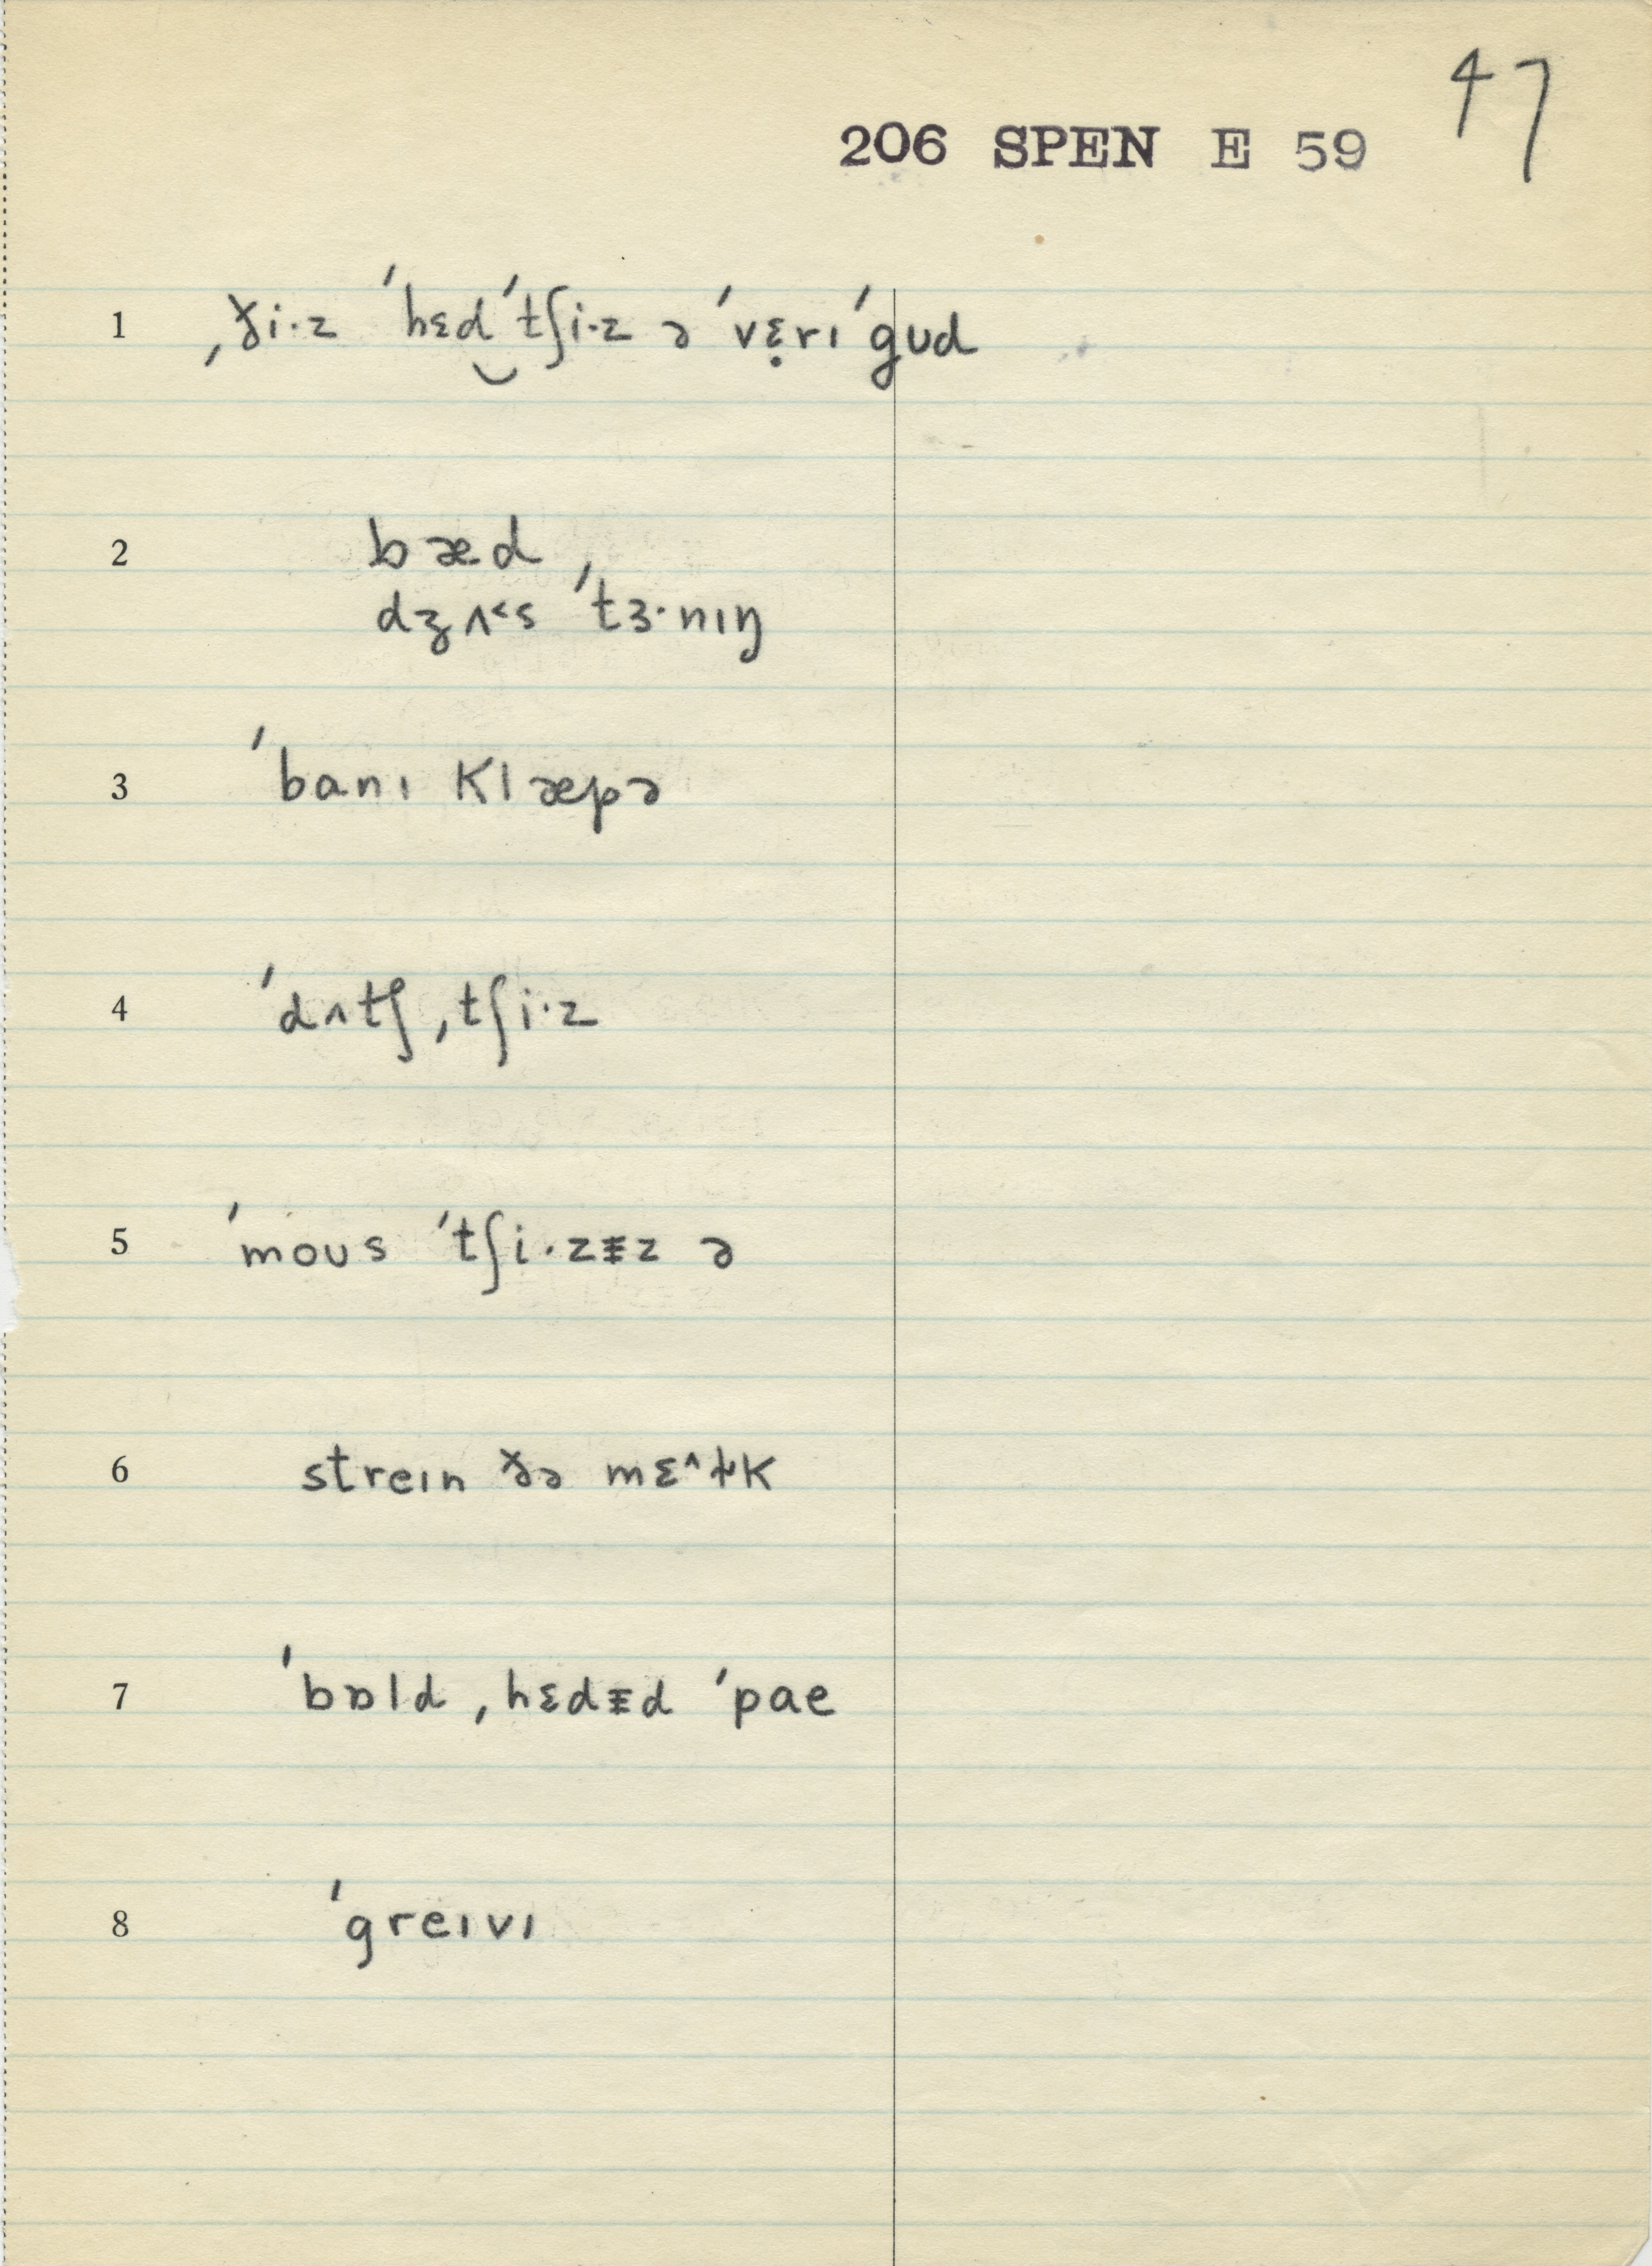 47
206 SPEN E 59
1 ˌði·z ˈhɛd‿ˈtʃi·z ə ˈvɛ̣rɪ ˈgud
2 bæd
dʒʌ˂s ˈtɜ·nɪŋ
3 ˈbanɪ klæpə
4 ˈdʌtʃ ˌtʃi·z
5 ˈmoʊs ˈtʃi·zɪ̵z ə
6 streɪn ðə mɛ˄ɫk
7 ˈbɒld ˌhɛdɪ̵d ˈpae
8 ˈgreɪvɪ